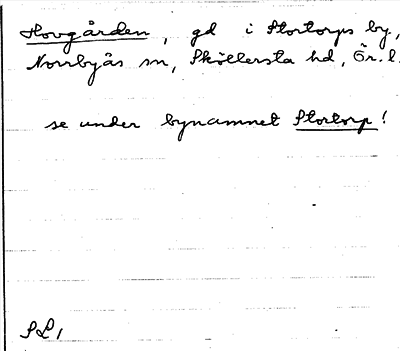 Hovgården, gd i Stortorps by,
Norrbyås sn, Sköllersta hd, Ör. l.
se under bynamnet Stortorp!